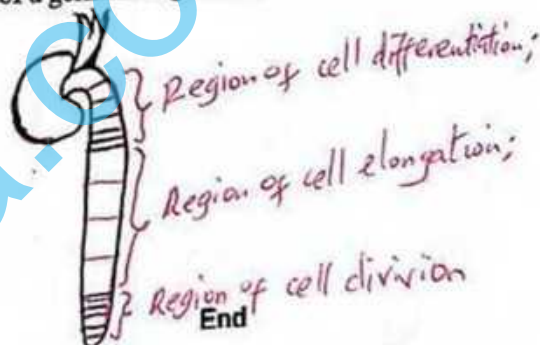 Region of cell differentiation;
Region of cell elongation;
Region of cell division
End